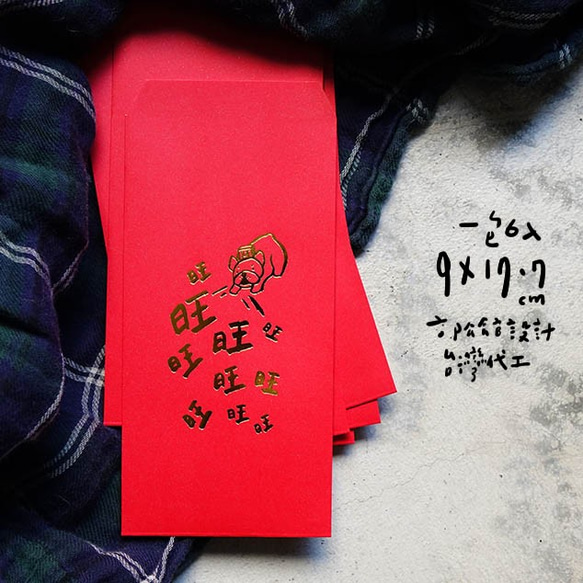 旺
旺
旺 旺
旺
旺 旺
旺 旺 旺
一包6入
9X17.7
cm
設計
台灣代工